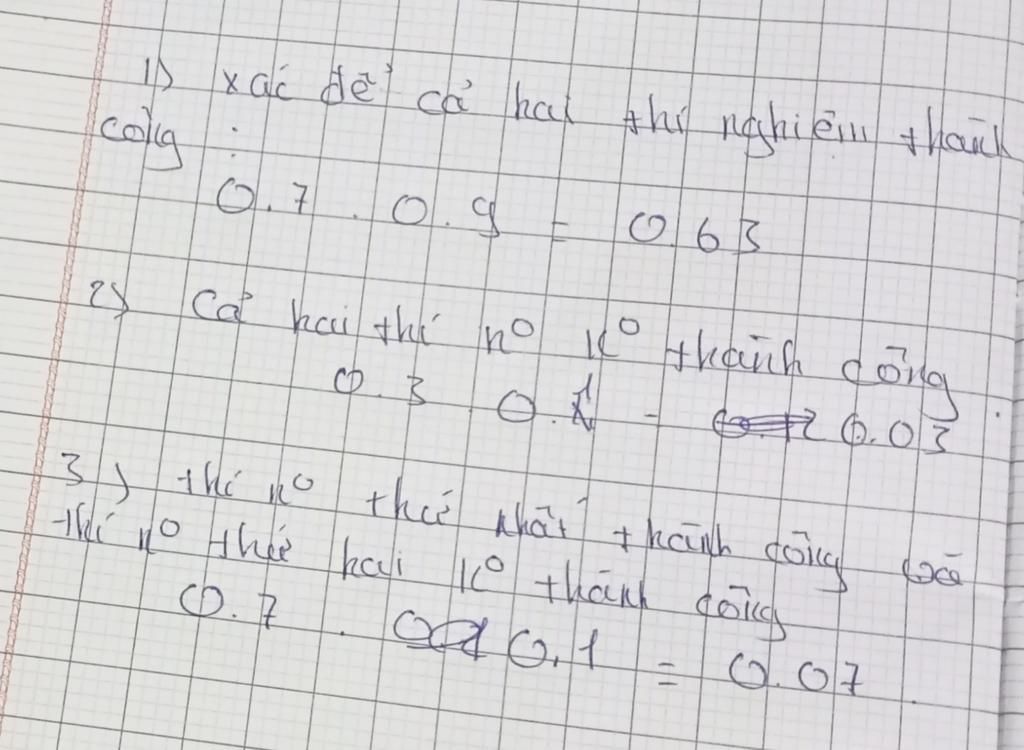 1) xác để cả hai thí nghiệm thành
công :
0.7 . 0.9 = 0.63
2) Cả hai thí n⁰ k⁰ thành công
0.3 . 0.1 = 0.03
3) thí n⁰ thứ nhất thành công và
thí n⁰ thứ hai k⁰ thành công
0.7 . 0.1 = 0.07